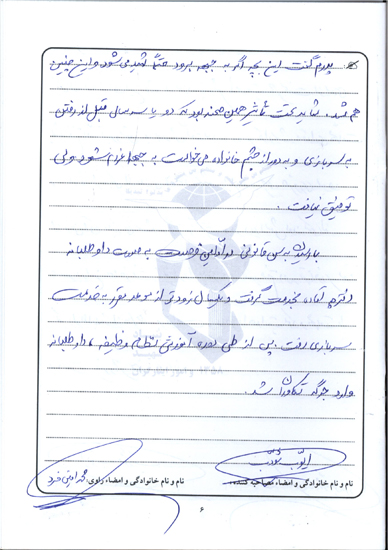 پدرم گفت این بچه اگر به جبهه برود حتماً شهید می‌شود و این چنین
هم شد. شاید تحت تأثیر همین صحنه بود که دو یا سه سال قبل از رفتن
به سربازی و به دور از چشم خانواده می‌خواست به جبهه اعزام شود ولی
توفیق نیافت.
با رسیدن به سن قانونی در اولین فرصت به صورت داوطلبانه
دفترچه آماده بخدمت گرفت و یکسال زودتر از موعد مقرر به خدمت
سربازی رفت. پس از طی دوره آموزشی نظام وظیفه، داوطلبانه
وارد جرگه تکاوران شد.
ایوب
نام و نام خانوادگی و امضاء مصاحبه کننده:
نام و نام خانوادگی و امضاء راوی: محمد امینی فرد
۶